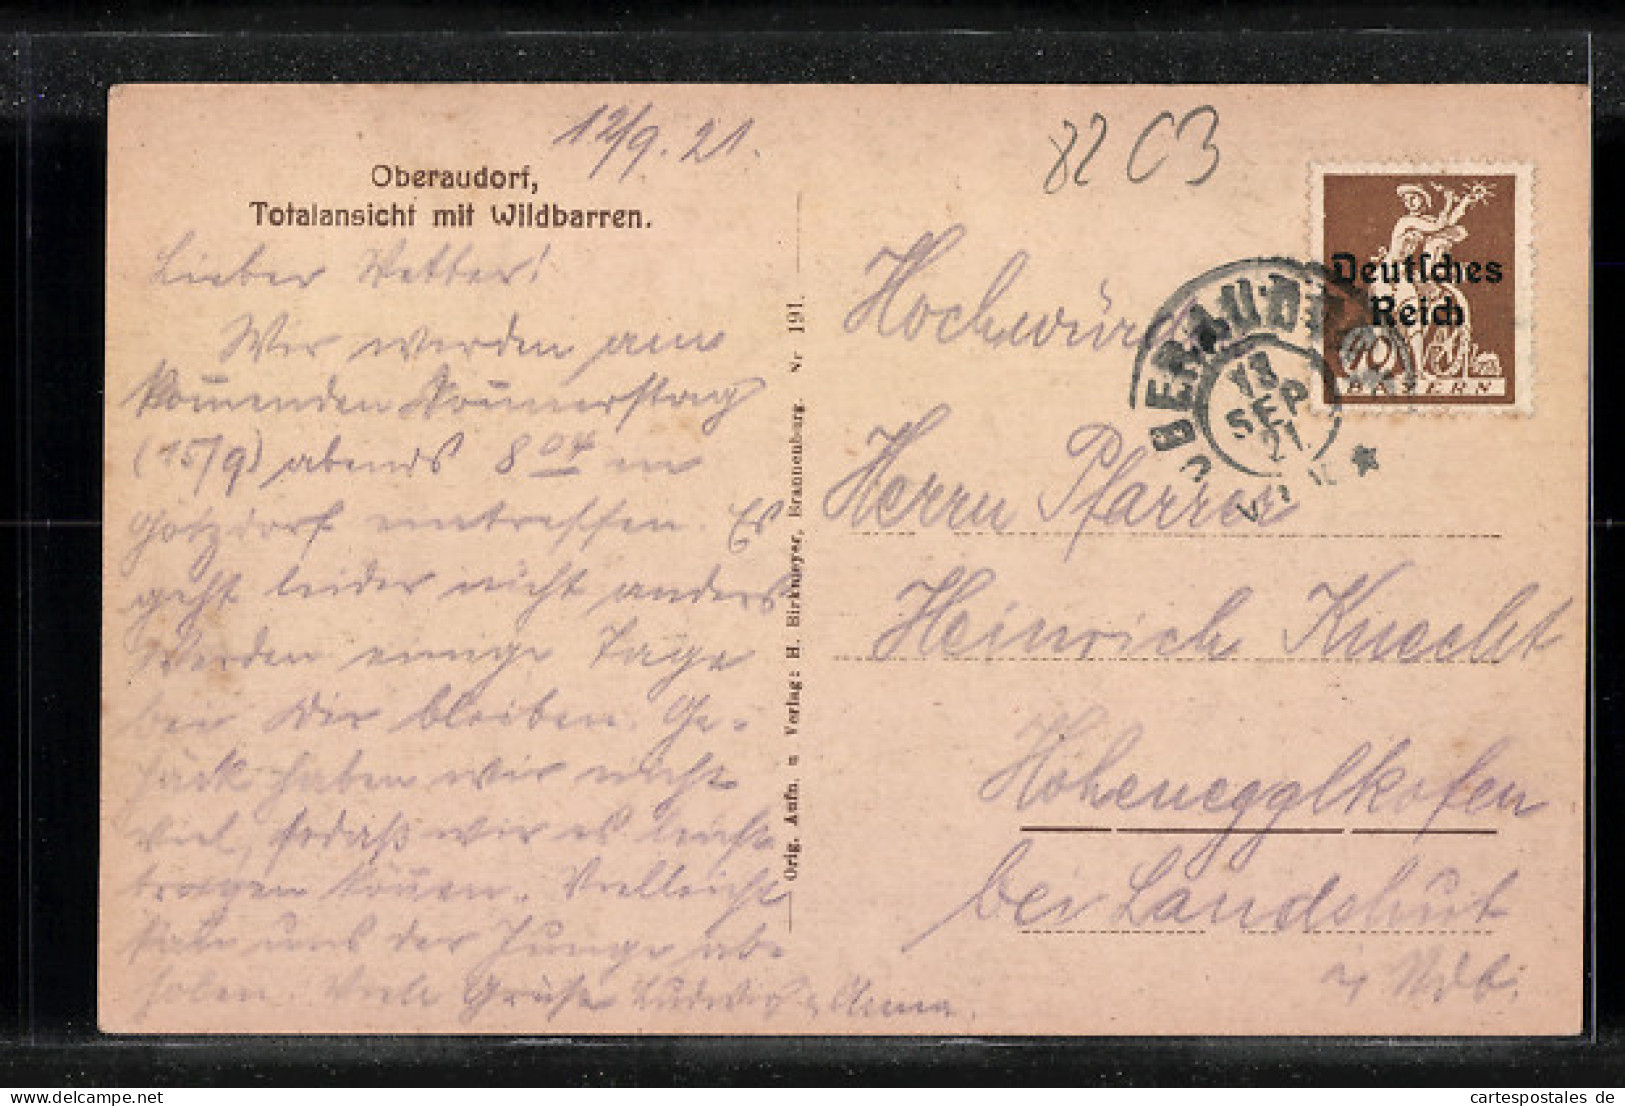 12/9. 21.
Oberaudorf,
Totalansicht mit Wildbarren.
Lieber Vetter!
Wir werden am
kom̅enden Don̅erstag
(15/9) abends 8 04 in
Götzdorf eintreffen. Es
geht leider nicht anders
Werden einige Tage
bei Dir bleiben. Ge-
päck haben wir nicht
viel, sodaß wir es leicht
tragen kön̅en. Vielleicht
kan̅ uns der Junge ab-
holen. Viele Grüße Ludwig & Anna.
Orig. Aufn. u Verlag: H. Birkmeyer, Brannenburg. Nr 191.
82 C3
Deutsches
Reich
40
BAYERN
OBERAUDORF
13
SEP
21
Hochwürd
Herrn Pfarrer
Heinrich Knecht
Hohenegglkofen
bei Landshut
i/ Ndb.
cartespostales de